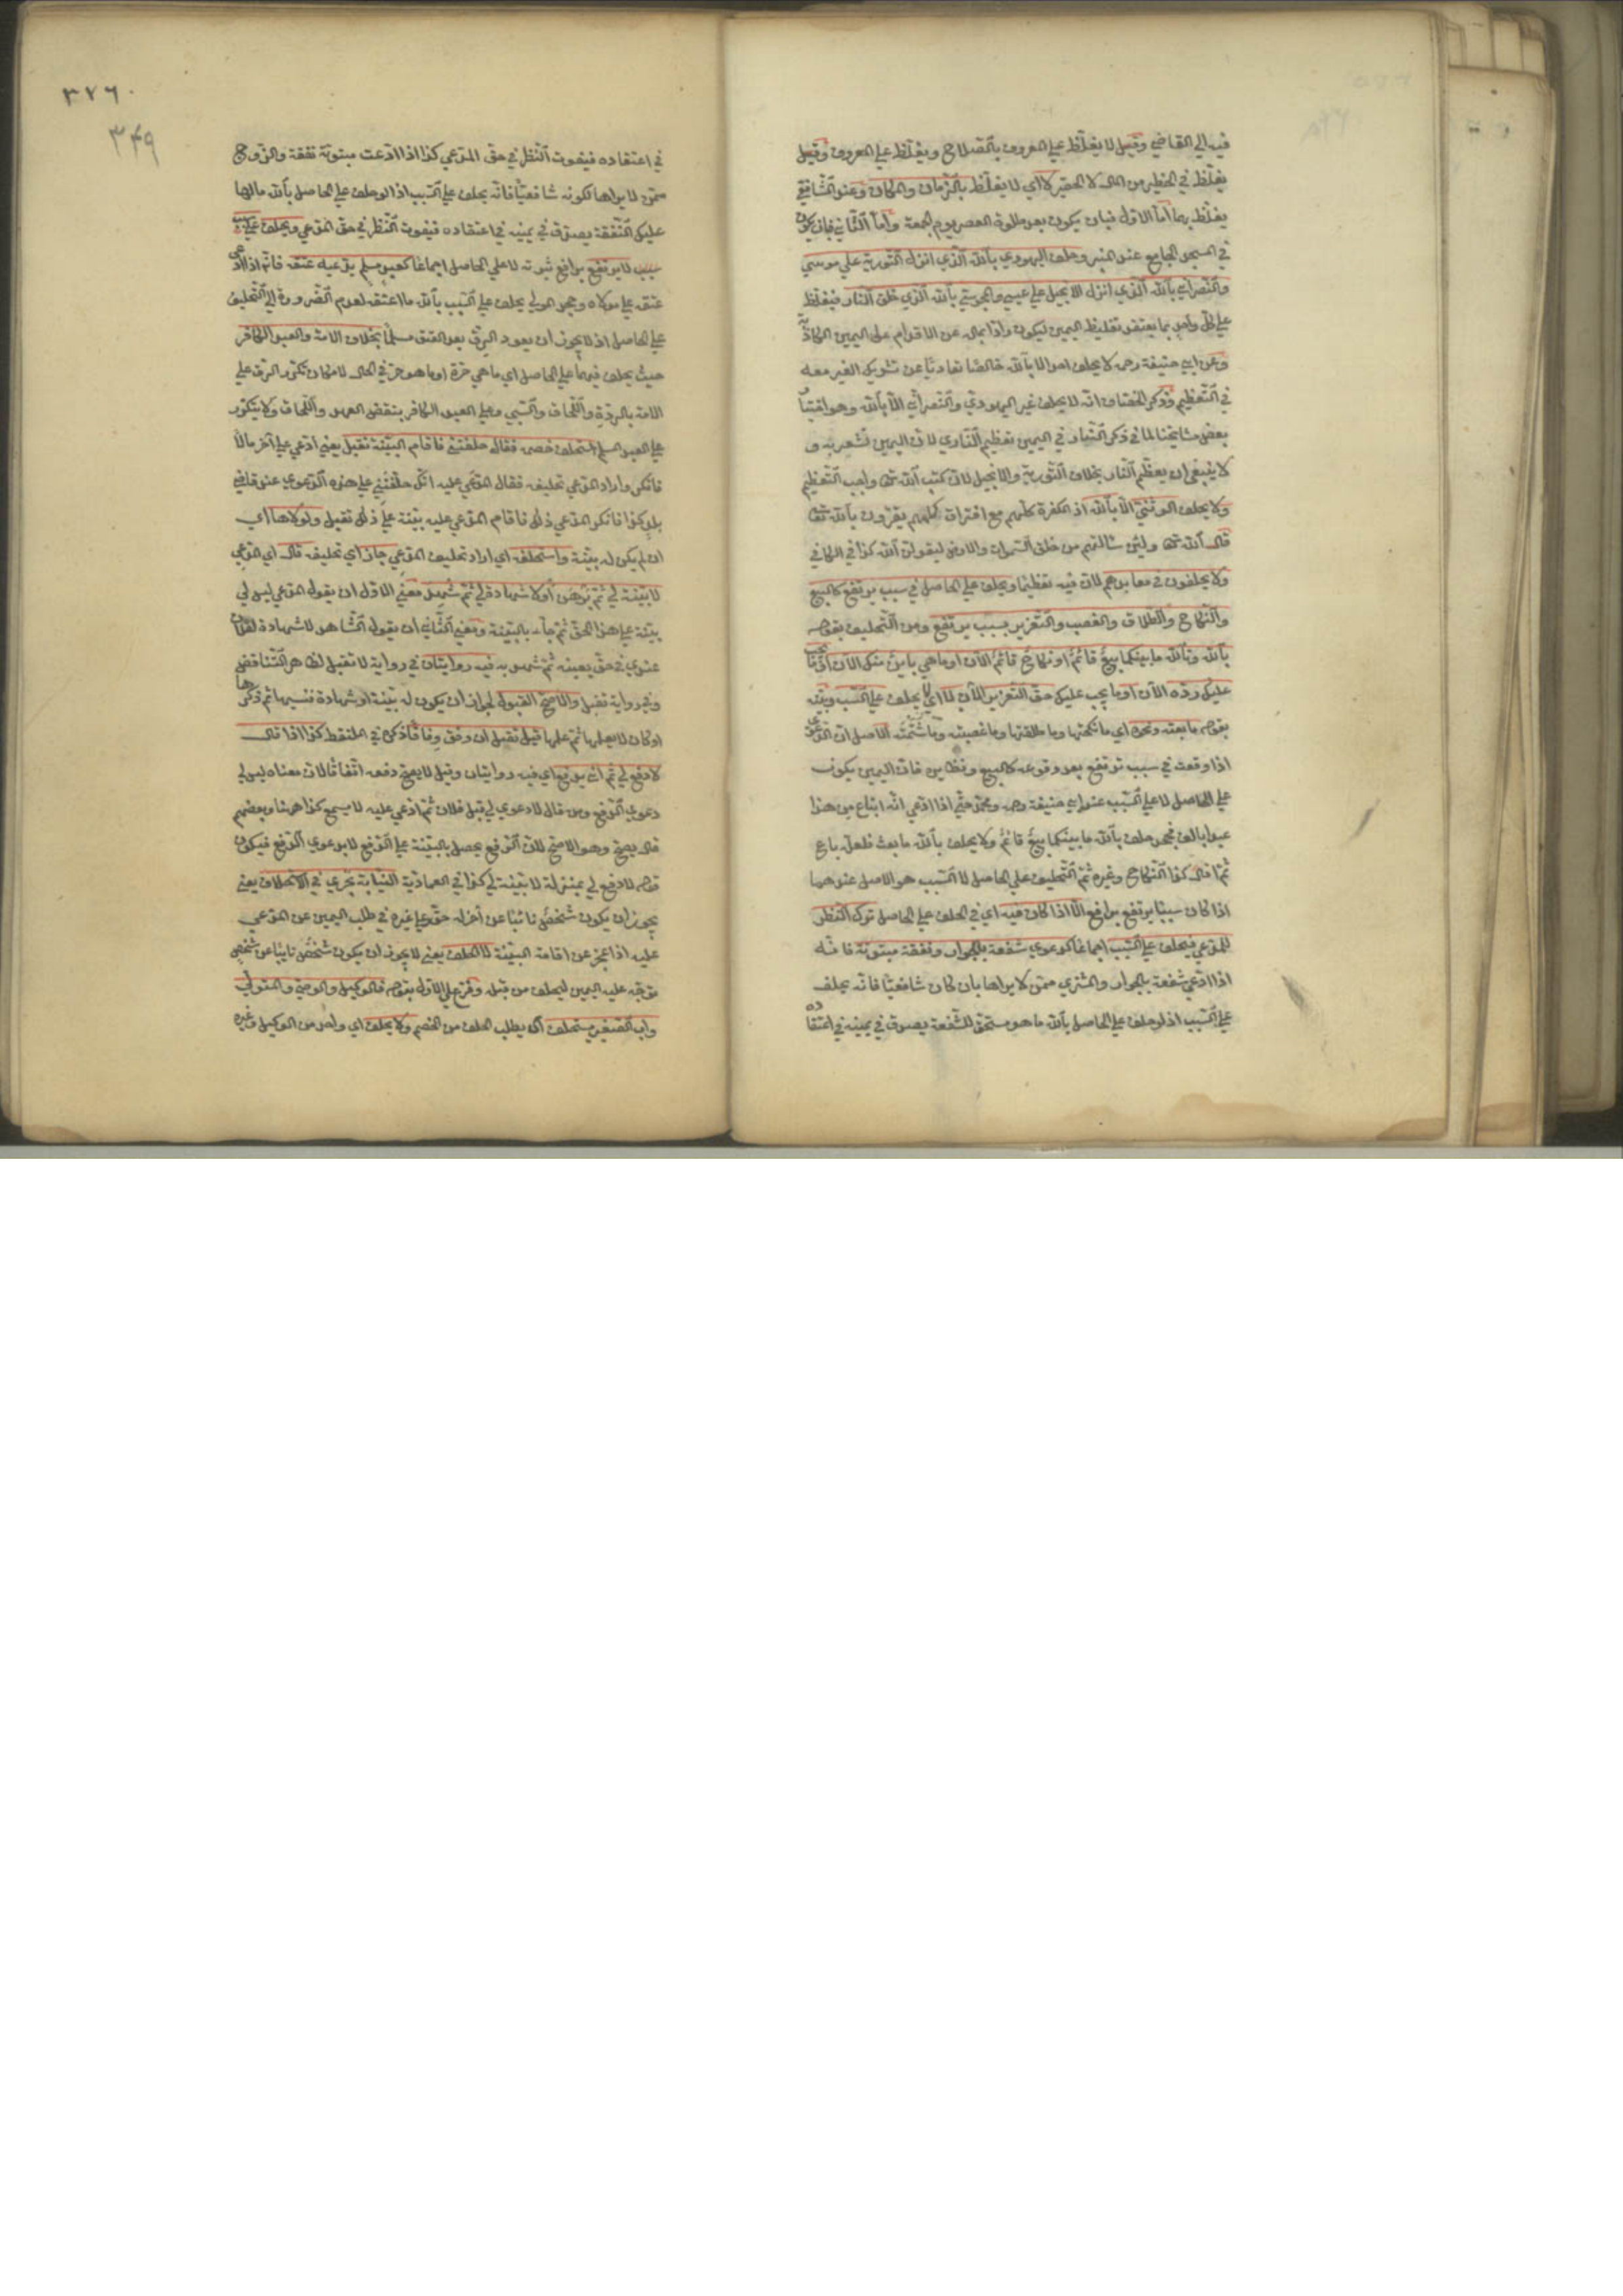 فيه الي القاضي وقيل لا يغلظ علي المعروف بالصلاح ويغلظ علي المعروف وقيل
يغلظ في الخطير من المال لا الحقير لا اي لا يغلظ بالزمان والمكان وعند الشافعي
يغلظ بهما اما الاول فبان يكون بعد صلوة العصر يوم الجمعة واما الثاني فبان يكون
في المسجد الجامع عند المنبر وحلف اليهودي بالله الذي انزل التورية علي موسي
والنصراني بالله الذي انزل الانجيل علي عيسي والمجوسي بالله الذي خلق النار فيغلظ
علي كل واحد بما يعتقد تغليظ اليمين ليكون رادعا له عن الاقدام علي اليمين الكاذبة
وعن ابي حنيفة رحمه لا يحلف احد الا بالله خالصا تفاديا عن تشريك الغير معه
في التعظيم وذكر الخصاف انه لا يحلف غير اليهودي والنصراني الا بالله وهو اختيار
بعض مشايخنا لما في ذكر النار في اليمين تعظيم النار لان اليمين تشعر به و
لا ينبغي ان يعظم النار بخلاف التورية والانجيل لان كتب الله تعا واجب التعظيم
ولا يحلف الوثني الا بالله اذ الكفرة كلهم مع افتراق مللهم يقرون بالله تعا
قال الله تعا ولئن سألتهم من خلق السموات والارض ليقولن الله كذا في الكافي
ولا يحلفون في معابدهم لان فيه تعظيما ويحلف علي الحاصل في سبب يرتفع كالبيع
والنكاح والطلاق والغصب والتعزير بسبب يرتفع وبين التحليف بقوله
بالله وتالله ما بينكما بيع قائم او نكاح قائم الان او ما هي باين منك الان او ما يجب
عليك رده الان او ما يجب عليك حق التعزير الان لما اي لا يحلف علي السبب وبينه
بقوله ما بعته ونحوه اي ما نكحتها وما طلقتها وما غصبته وما شتمته الاصل ان الدعوي
اذا وقعت في سبب ترتفع بعد وقوعه كالبيع ونظايره فان اليمين يكون
علي الحاصل لا علي السبب عند ابي حنيفة رحمه ومحمد حتي اذا ادعي انه ابتاع من هذا
عبدا بالف فجحد حلف بالله ما بينكما بيع قائم ولا يحلف بالله ما بعت فلعله باع
ثم اقال كذا النكاح وغيره ثم التحليف علي الحاصل لا السبب هو الاصل عندهما
اذا كان سببا يرتفع برافع الا اذا كان فيه اي في الحلف علي الحاصل ترك النظر
للمدعي فيحلف علي السبب اجماعا كدعوي شفعة بالجوار ونفقة مبتوتة فانه
اذا ادعي شفعة بالجوار والمشتري ممن لا يراها بان كان شافعيا فانه يحلف
علي السبب اذ لو حلف علي الحاصل بالله ما هو مستحق للشفعة يصدق في يمينه في اعتقاده
٣٧٦
٣٤٩
في اعتقاده فيفوت النظر في حق المدعي كذا اذا ادعت مبتوتة نفقة والزوج
ممن لا يراها لكونه شافعيا فانه يحلف علي السبب اذ لو حلف علي الحاصل بالله ما لها
عليك النفقة يصدق في يمينه في اعتقاده فيفوت النظر في حق المدعي ويحلف علي
سبب لا يرتفع برافع ثبوته لا علي الحاصل اجماعا كعبد مسلم يدعي عتقه فانه اذا ادعي
عتقه علي مولاه وجحد المولي يحلف علي السبب بالله ما اعتقه لعدم الضرورة الي التحليف
علي الحاصل اذ لا يجوز ان يعود الرق بعد العتق مسلما بخلاف الامة والعبد الكافر
حيث يحلف فيهما علي الحاصل اي ما هي حرة او ما هو حر في الحال لامكان تكرر الرق علي
الامة بالردة واللحاق والسبي وعلي العبد الكافر بنقض العهد واللحاق ولا يتكرر
علي العبد المسلم استحلف خصمه فقال حلفتني فاقام البينة تقبل يعني ادعي علي آخر مالا
فانكر واراد المدعي تحليفه فقال المدعي عليه انك حلفتني علي هذه الدعوي عند قاضي
بلد كذا فانكر المدعي ذلك فاقام المدعي عليه بينة علي ذلك تقبل ولولاها اي
ان لم يكن له بينة واستحلفه اي اراد تحليف المدعي جاز اي تحليفه قال اي المدعي
لا بينة لي ثم برهن او لا شهادة لي ثم شهد فمعني الاول ان يقول المدعي ليس لي
بينة علي هذا الحق ثم جاء بالبينة ومعني الثاني ان يقول الشاهد لا شهادة لفلان
عندي في حق بعينه ثم شهد به فيه روايتان في رواية لا تقبل لظاهر التناقض
وفي رواية تقبل والاصح القبول لجواز ان يكون له بينة او شهادة فنسيها ثم ذكرها
او كان لا يعلمها ثم علمها قيل تقبل ان وفق وفاقا ذكره في الملتقط كذا اذا قال
لا دفع لي ثم اتي بدفع اي فيه روايتان وقيل لا يصح دفعه اتفاقا لان معناه ليس لي
دعوي الدفع ومن قال لا دعوي لي قبل فلان ثم ادعي عليه لا يسمع كذا ههنا وبعضهم
قال يصح وهو الاصح لان الدفع يحصل بالبينة علي الدفع لا بدعوي الدفع فيكون
قوله لا دفع لي بمنزلة لا بينة لي كذا في العمادية النيابة تجري في الاستحلاف يعني
يجوز ان يكون شخص نائبا عن آخر له حق علي غيره في طلب اليمين عن المدعي
عليه اذا عجز عن اقامة البينة لا الحلف يعني لا يجوز ان يكون شخص نايبا عن شخص
توجه عليه اليمين ليحلف من قبله وفرع علي الاول بقوله فالوكيل والوصي والمتولي
واب الصغير يستحلف اي يطلب الحلف من الخصم ولا يحلف اي واحد من الوكيل وغيره